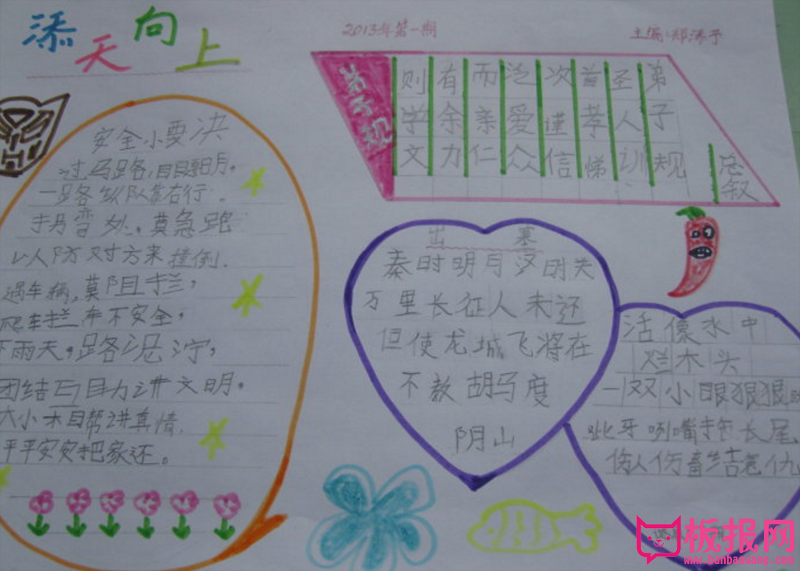 添天向上
2013年第一期
主编:郑添予
安全小要决
过马路,目目明。
一路各纵队靠右行。
拐弯处,莫急跑
以人防对方来撞倒.
遇车辆,莫阻拦,
爬车拦车不安全,
下雨天,路况泞,
团结 自力讲文明。
大小 帮讲真情.
平平安安把家还。
弟子规
总叙
弟子规
圣人训
首孝悌
次谨信
泛爱众
而亲仁
有余力
则学文
出塞
秦时明月汉时关
万里长征人未还
但使龙城飞将在
不教胡马度
阴山
活像水中
烂木头
一双小眼狠狠
呲牙咧嘴 长尾
伤人伤畜结冤仇
板报网
www.banbaowang.com